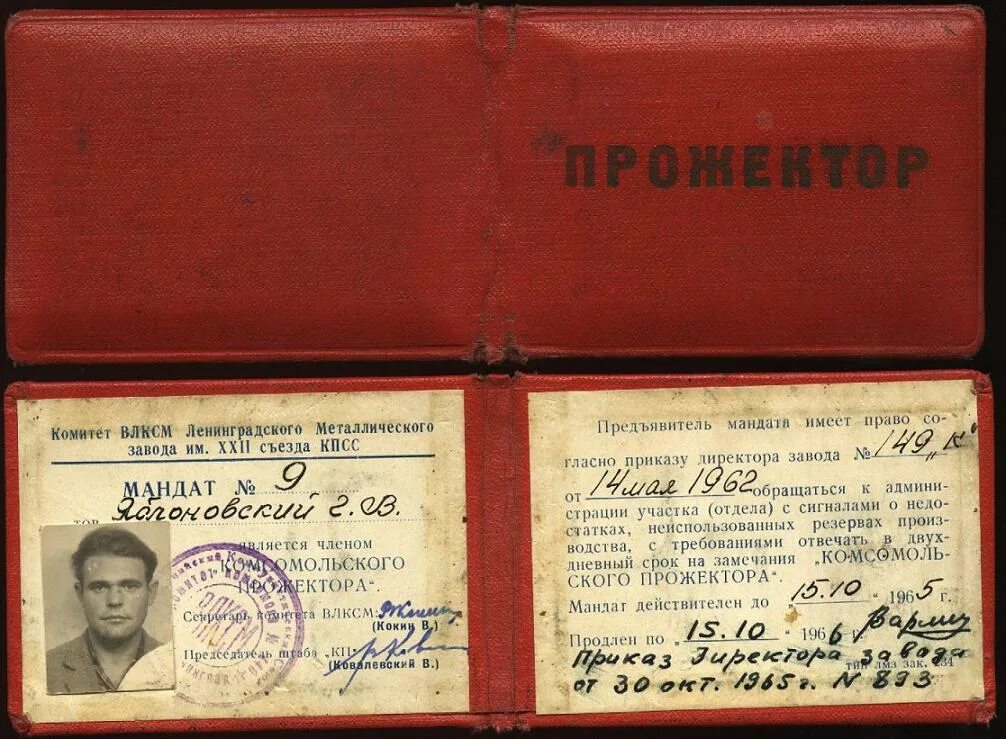 ПРОЖЕКТОР
Комитет ВЛКСМ Ленинградского Металлического
завода им. XXII съезда КПСС
МАНДАТ № 9
тов. Яблоновский Г. В.
является членом
"КОМСОМОЛЬСКОГО
ПРОЖЕКТОРА".
Секретарь комитета ВЛКСМ:
(Кокин В.)
Председатель штаба „КП"
(Ковалевский В.)
ВЛКСМ
Предъявитель мандата имеет право со-
гласно приказу директора завода № 149 „К"
от 14 мая 1962 обращаться к админи-
страции участка (отдела) с сигналами о недо-
статках, неиспользованных резервах произ-
водства, с требованиями отвечать в двух-
дневный срок на замечания "КОМСОМОЛЬ-
СКОГО ПРОЖЕКТОРА".
Мандат действителен до 15.10 " 1965 г.
Продлен по „15.10 " 1966 г.
Приказ Директора завода
тип. лмз зак. 234
от 30 окт. 1965 г. N 893